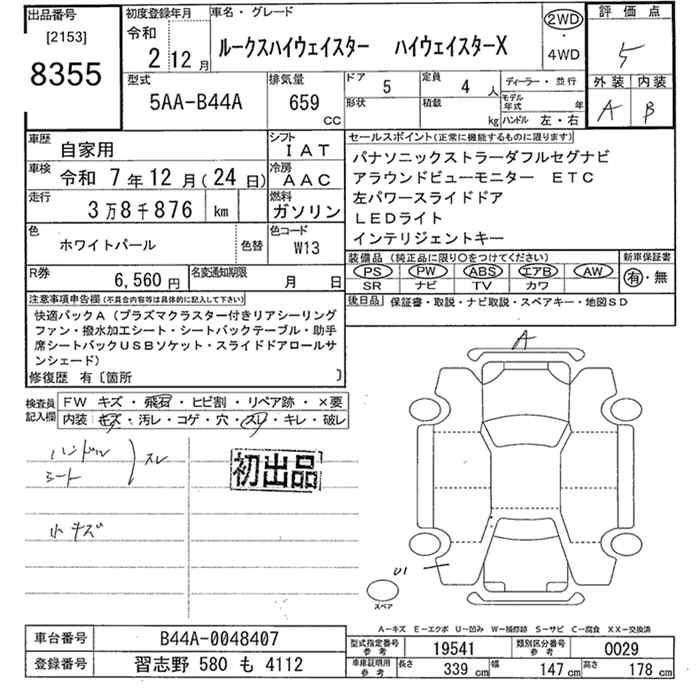 出品番号
[2153]
8355
初度登録年月
令和
2 12 月
車名・グレード
ルークスハイウェイスター ハイウェイスターX
2WD
・
4WD
評価点
5
外装 内装
A B
型式
5AA-B44A
排気量
659
CC
ドア 5
形状
定員 4 人
積載 kg
ディーラー・並行
モデル年式 年
ハンドル 左・右
車歴
自家用
シフト
IAT
車検
令和 7年12月(24日)
冷房
AAC
走行
3万8千876 km
燃料
ガソリン
色
ホワイトパール
色替
色コード
W13
R券
6,560 円
名変通知期限
月 日
セールスポイント(正常に機能するものに限ります)
パナソニックストラーダフルセグナビ
アラウンドビューモニター ETC
左パワースライドドア
LEDライト
インテリジェントキー
装備品(純正品に限り○をつけてください)
PS PW ABS エアB AW
SR ナビ TV カワ
新車保証書
有・無
後日品 保証書・取説・ナビ取説・スペアキー・地図SD
注意事項申告欄(不具合内容等は具体的に記入して下さい)
快適パックA(プラズマクラスター付きリアシーリング
ファン・撥水加工シート・シートバックテーブル・助手
席シートバックUSBソケット・スライドドアロールサ
ンシェード)
修復歴 有〔箇所 〕
検査員記入欄
FW キズ・飛石・ヒビ割・リペア跡・×要
内装 キズ・汚レ・コゲ・穴・スレ・キレ・破レ
ハンドル
シート
スレ
小キズ
初出品
A
U1
スペア
A-キズ E-エクボ U-凹み W-補修跡 S-サビ C-腐食 XX-交換済
車台番号 B44A-0048407
登録番号 習志野 580 も 4112
型式指定番号 参考 19541
類別区分番号 参考 0029
車庫証明用 参考
長さ 339 cm
幅 147 cm
高さ 178 cm